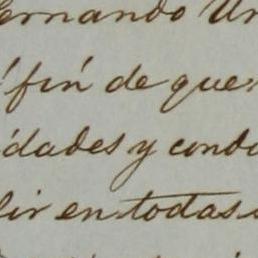 ernando Ur
fin de que
idades y condi
lir en todas